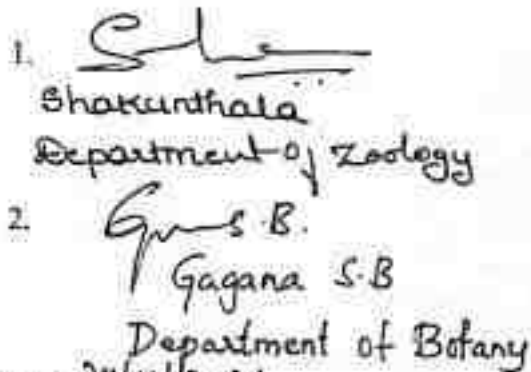 1.
Shakunthala
Department of Zoology
2. S.B.
Gagana S.B
Department of Botany